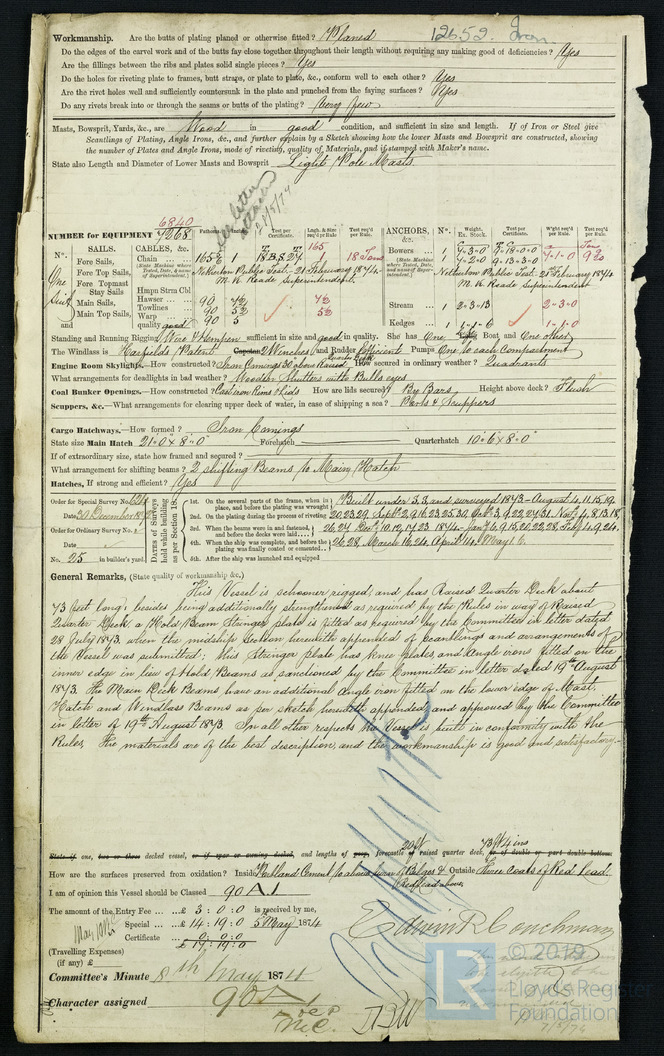 12652 Iron
Workmanship. Are the butts of plating planed or otherwise fitted? Planed
Do the edges of the carvel work and of the butts fay close together throughout their length without requiring any making good of deficiencies? Yes
Are the fillings between the ribs and plates solid single pieces? Yes
Do the holes for riveting plate to frames, butt straps, or plate to plate, &c., conform well to each other? Yes
Are the rivet holes well and sufficiently countersunk in the plate and punched from the faying surfaces? Yes
Do any rivets break into or through the seams or butts of the plating? Very few
Masts, Bowsprit, Yards, &c., are Wood in good condition, and sufficient in size and length. If of Iron or Steel give
Scantlings of Plating, Angle Irons, &c., and further explain by a Sketch showing how the lower Masts and Bowsprit are constructed, showing
the number of Plates and Angle Irons, mode of riveting, quality of Materials, and if stamped with Maker's name.
State also Length and Diameter of Lower Masts and Bowsprit Light Pole Masts.
See letter attached 21/5/74
6840
NUMBER for EQUIPMENT 7268
Nº. SAILS. CABLES, &c. Fathoms. Test per Certificate. Lngth. & Size req'd per Rule. Test req'd per Rule. ANCHORS, &c. Nº. Weight. Ex. Stock. Test per Certificate. W'ght req'd per Rule. Test req'd per Rule.
Fore Sails, Chain 165 1 18 165 1 18 Tons Bowers 1
Fore Top Sails, Netherton Public Test. 21 February 1874. Netherton Public Test. 21 February 1874
Fore Topmast Stay Sails M. W. Reade Superintendent. M. W. Reade Superintendent
One Suit Main Sails, Hmpn Strm Cbl
Hawser 90 7½ 7½ Stream 1 2-3-13 2-3-0
Main Top Sails, Towlines 90 5½ 5½
and Warp 90 5 Kedges 1 1-1-6 1-1-0
quality good
Standing and Running Rigging Wire & Hempen sufficient in size and good in quality. She has One Boat and One other
The Windlass is Harfields Patent Capstan 2 Winches and Rudder Efficient Pumps One to each Compartment
Engine Room Skylights.—How constructed? Iron Comings 30" above Raised Quarter Deck How secured in ordinary weather? Quadrants
What arrangements for deadlights in bad weather? Wooden Shutters with Bulls eyes
Coal Bunker Openings.—How constructed? Cast iron Rims & Lids How are lids secured? By Bars Height above deck? Flush
Scuppers, &c.—What arrangements for clearing upper deck of water, in case of shipping a sea? Ports & Scuppers
Cargo Hatchways.—How formed? Iron Comings
State size Main Hatch 21·0 × 8·0 Forehatch Quarterhatch 10·6 × 8·0
If of extraordinary size, state how framed and secured?
What arrangement for shifting beams? 2 shifting Beams to Main Hatch
Hatches, If strong and efficient? Yes
Order for Special Survey No.
Date 30 December
Order for Ordinary Survey No.
Date
No. 25 in builder's yard.
DATES of Surveys held while building as per Section 18.
1st. On the several parts of the frame, when in place, and before the plating was wrought Built under S.S. and surveyed 1873 – August 4, 11, 15, 19.
2nd. On the plating during the process of riveting 20, 23, 29, Septr 2, 9, 16, 23, 25, 30, Octr 3, 9, 22, 24, 31, Novr 4, 8, 13, 18,
3rd. When the beams were in and fastened, and before the decks were laid 26, 27, Decr 10, 12, 17, 23 1874 – Jany 6, 9, 15, 20, 22, 28, Feby 6, 9, 24.
4th. When the ship was complete, and before the plating was finally coated or cemented 26, 28, March 16, 24, April 14, May 1, 6.
5th. After the ship was launched and equipped
General Remarks, (State quality of workmanship &c.,)
This Vessel is schooner rigged, and has Raised Quarter Deck about
73 feet long, besides being additionally strengthened as required by the Rules in way of Raised
Quarter Deck, a Hold Beam Stringer plate is fitted as required by the Committee in letter dated
28 July 1873, when the midship Section herewith appended of scantlings and arrangements of
the Vessel was submitted; this Stringer plate has knee plates, and Angle irons fitted on the
inner edge in lieu of Hold Beams as sanctioned by the Committee in letter dated 19th August
1873. The Main Deck Beams have an additional Angle iron fitted on the lower edge of Mast,
Hatch and Windlass Beams as per sketch herewith appended and approved by the Committee
in letter of 19th August 1873. In all other respects the Vessel is built in conformity with the
Rules, The materials are of the best description, and the workmanship is good and satisfactory.
State if one, two or three decked vessel, or if spar or awning decked, and lengths of poop, forecastle 20ft or raised quarter deck, 73ft 4 ins or of double or part double bottom
How are the surfaces preserved from oxidation? Inside Portland Cement to above turn of Bilges & Red lead above. Outside Three coats of Red Lead.
I am of opinion this Vessel should be Classed 90 A.1
The amount of the Entry Fee ... £ 3 : 0 : 0 is received by me,
Special ... £ 14 : 19 : 0 5 May 1874
Certificate ... 0 : 0 : 0
£ 17 : 19 : 0
(Travelling Expenses)
(if any) £
Edwin R Couchman
Committee's Minute 8th May 1874
Character assigned 90 A 1
M.C.
7/5/74
© 2019
Lloyd's Register
Foundation
LR